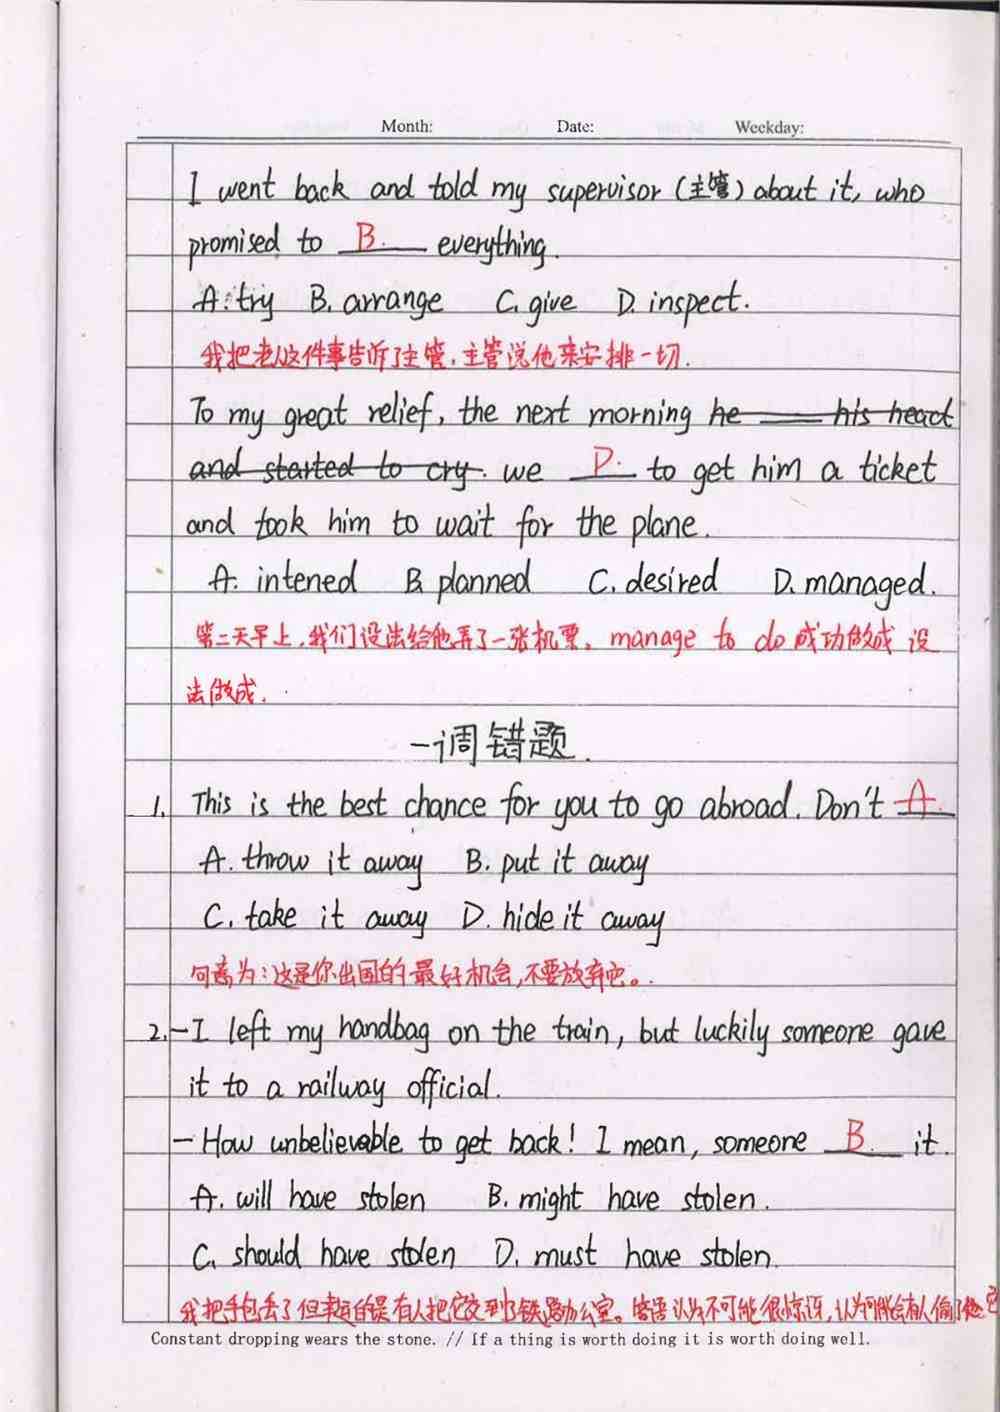 Month: Date: Weekday:
I went back and told my supervisor (主管) about it, who
promised to B. everything.
A. try B. arrange C. give D. inspect.
我把老人这件事告诉了主管,主管说他来安排一切.
To my great relief, the next morning he ___ his head
and started to cry. we D. to get him a ticket
and took him to wait for the plane.
A. intened B. planned C. desired D. managed.
第二天早上,我们设法给他弄了一张机票。manage to do 成功做成 设
法做成.
一调错题.
1. This is the best chance for you to go abroad. Don't A.
A. throw it away B. put it away
C. take it away D. hide it away
句意为:这是你出国的最好机会,不要放弃它。
2. -I left my handbag on the train, but luckily someone gave
it to a railway official.
- How unbelievable to get back! I mean, someone B. it.
A. will have stolen B. might have stolen.
C. should have stolen D. must have stolen.
我把手包丢了但幸运的是有人把它交到了铁路办公室。答语认为不可能很惊讶,认为可能会有人偷了
Constant dropping wears the stone. // If a thing is worth doing it is worth doing well.